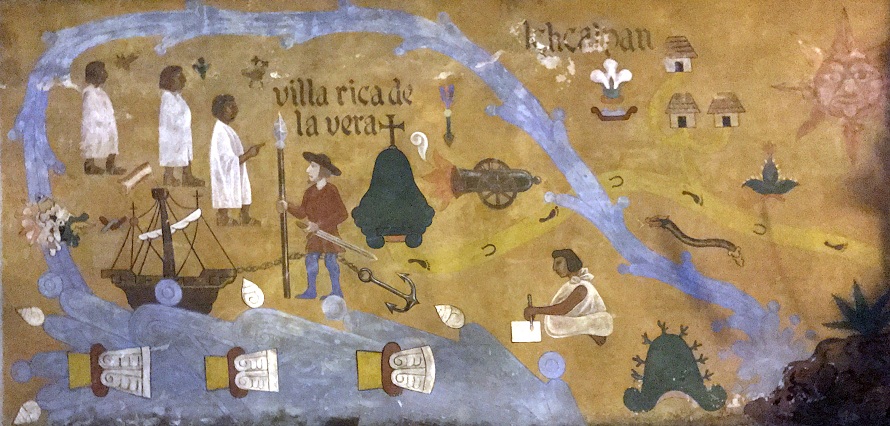 Ichcalpan
villa rica de
la vera